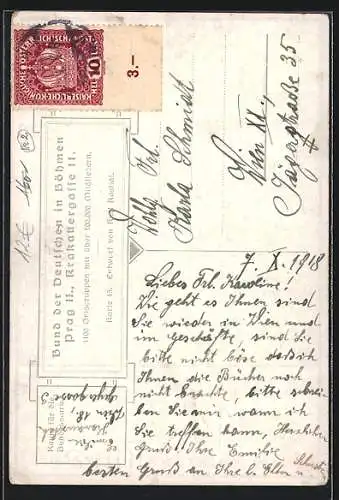 KAISERLICHE KÖNIGLICHE ÖSTERR.
10
3.—
Bund der Deutschen in Böhmen
Prag II., Krakauergasse 11.
1100 Ortsgruppen mit über 100.000 Mitgliedern.
Karte 15. Entwurf von
Frl.
Karla Schmidt
Wien XX.,
Jägerstraße 35
7. X. 1918
Liebes Frl. Karoline!
Wie geht es Ihnen sind
Sie wieder in Wien und
im Geschäfte, sind Sie
bitte nicht böse daß ich
Ihnen die Bücher noch
nicht brachte, bitte schrei-
ben Sie mir wann ich
Sie treffen kann, Herzlichen
Gruß Ihre Emilie
besten Gruß an Ihre l. Eltern u.